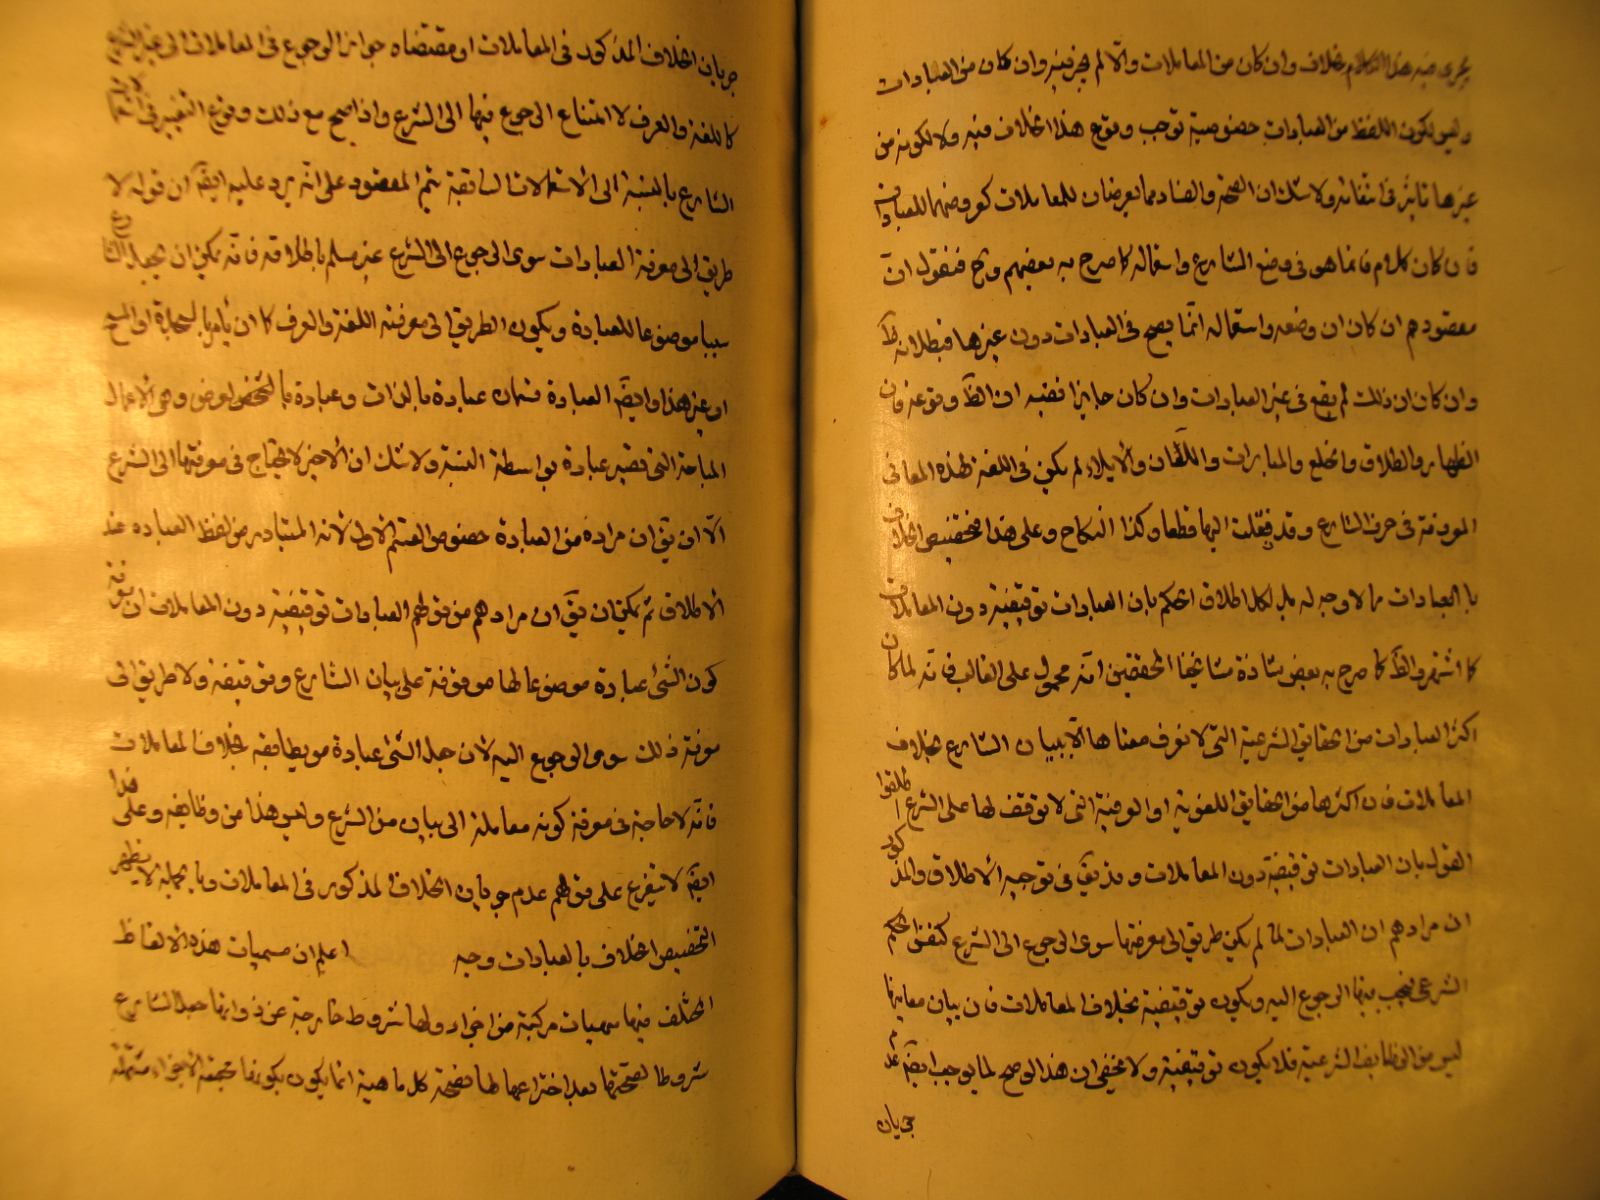 يجري فيه هذا الكلام بخلاف وان كان من المعاملات والا لم يجز فيه وان كان من العبادات
وليس لكون اللفظ من العبادات خصوصية توجب وقوع هذا الخلاف فيه ولا لكونه من
غيرها تاثير في انتفائه ولا شك ان الصحة والفساد مما يعرضان للمعاملات كعروضهما للعبادات
فان كان كلام فانما هو في وضع الشارع واستعماله كما صرح به بعضهم وح فنقول ان
مقصودهم ان كان ان وضعه واستعماله انما يصح في العبادات دون غيرها فبطلانه ظ
وان كان ان ذلك لم يقع في غير العبادات وان كان جايزا ففيه ان الظ وقوعه فان
الظهار والطلاق والخلع والمبارات واللعان والايلاء لم يكن في اللغة لهذه المعاني
المعروفة في عرف الشارع وقد نقلت اليها قطعا وكذا النكاح وعلى هذا فتخصيص الخلاف
بالعبادات مما لا وجه له بل لكل اطلاق الحكم بان العبادات توقيفية دون المعاملات
كما اشتهر والظ كما صرح به بعض سادة مشايخنا المحققين انه محمول على الغالب فانه لما كان
اكثر العبادات من الحقايق الشرعية التي لا نعرف معناها الا ببيان الشارع بخلاف
المعاملات فان اكثرها من الحقايق اللغوية او العرفية التي لا توقف لها على الشرع اطلقوا
القول بان العبادات توقيفية دون المعاملات وقد يق في توجيه الاطلاق والمذكور
ان مرادهم ان العبادات لما لم يكن طريق الى معرفتها سوى الرجوع الى الشرع كنفس الحكم
الشرعي فيجب فيها الرجوع اليه ويكون توقيفية بخلاف المعاملات فان بيان معانيها
ليس من الوظايف الشرعية فلا يكون توقيفية ولا يخفى ان هذا لو صح لما يوجب ايضا عدم
جريان
جريان الخلاف المذكور في المعاملات اذ مقتضاه جواز الرجوع في المعاملات الى غير الشرع
كاللغة والعرف لا امتناع الرجوع فيها الى الشرع واذا صح مع ذلك وقوع التغيير في استعمالات
الشارع بالنسبة الى الاستعمالات السابقة يتم المقصود على انه يرد عليه ايضا ان قوله لا
طريق الى معرفة العبادات سوى الرجوع الى الشرع غير مسلم باطلاقه فانه يمكن ان يجعل الشارع
سببا موضوعا للعبادة ويكون الطريق الى معرفته اللغة والعرف كان يأمر بالسجدة او المسح
او غير هذا وايضا العبادة قسمان عبادة بالذات وعبادة بالعرض وهي الاعمال
المباحة التي تصير عبادة بواسطة النية ولا شك ان الاخير لا يحتاج في معرفتها الى الشرع
الا ان يق ان مراده من العبادة خصوص القسم الاول لانه المتبادر من لفظ العبادة عند
الاطلاق ثم يمكن ان يق ان مرادهم من قولهم العبادات توقيفية دون المعاملات ان معرفة
كون الشئ عبادة موضوعا لها موقوفة على بيان الشارع وتوقيفه ولا طريق الى
معرفة ذلك سوى الرجوع اليه لان جعل الشئ عبادة من وظايفه بخلاف المعاملات
فانه لا حاجة في معرفة كونه معاملة الى بيان من الشرع وليس هذا من وظايفه وعلى هذا
ايضا لا يتفرع على قولهم عدم جريان الخلاف المذكور في المعاملات وبالجملة لا يظهر
لتخصيص الخلاف بالعبادات وجه اعلم ان مسميات هذه الالفاظ
المختلف فيها مهيات مركبة من اجزاء ولها شروط خارجة عن ذواتها جعل الشارع
شروطا لصحتها بعد اختراعها لها فصحة كل ماهية انما يكون بكونها مجتمعة الاجزاء مشتملة